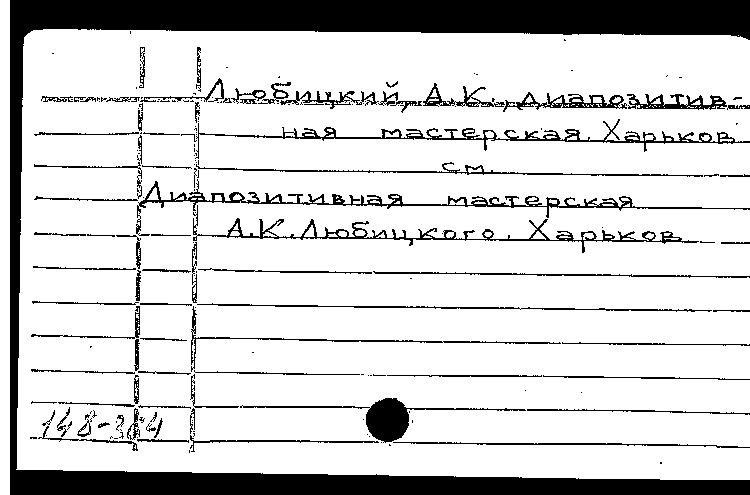 Любицкий, А.К., диапозитив-
ная мастерская. Харьков
см.
Диапозитивная мастерская
А.К. Любицкого. Харьков
148-364